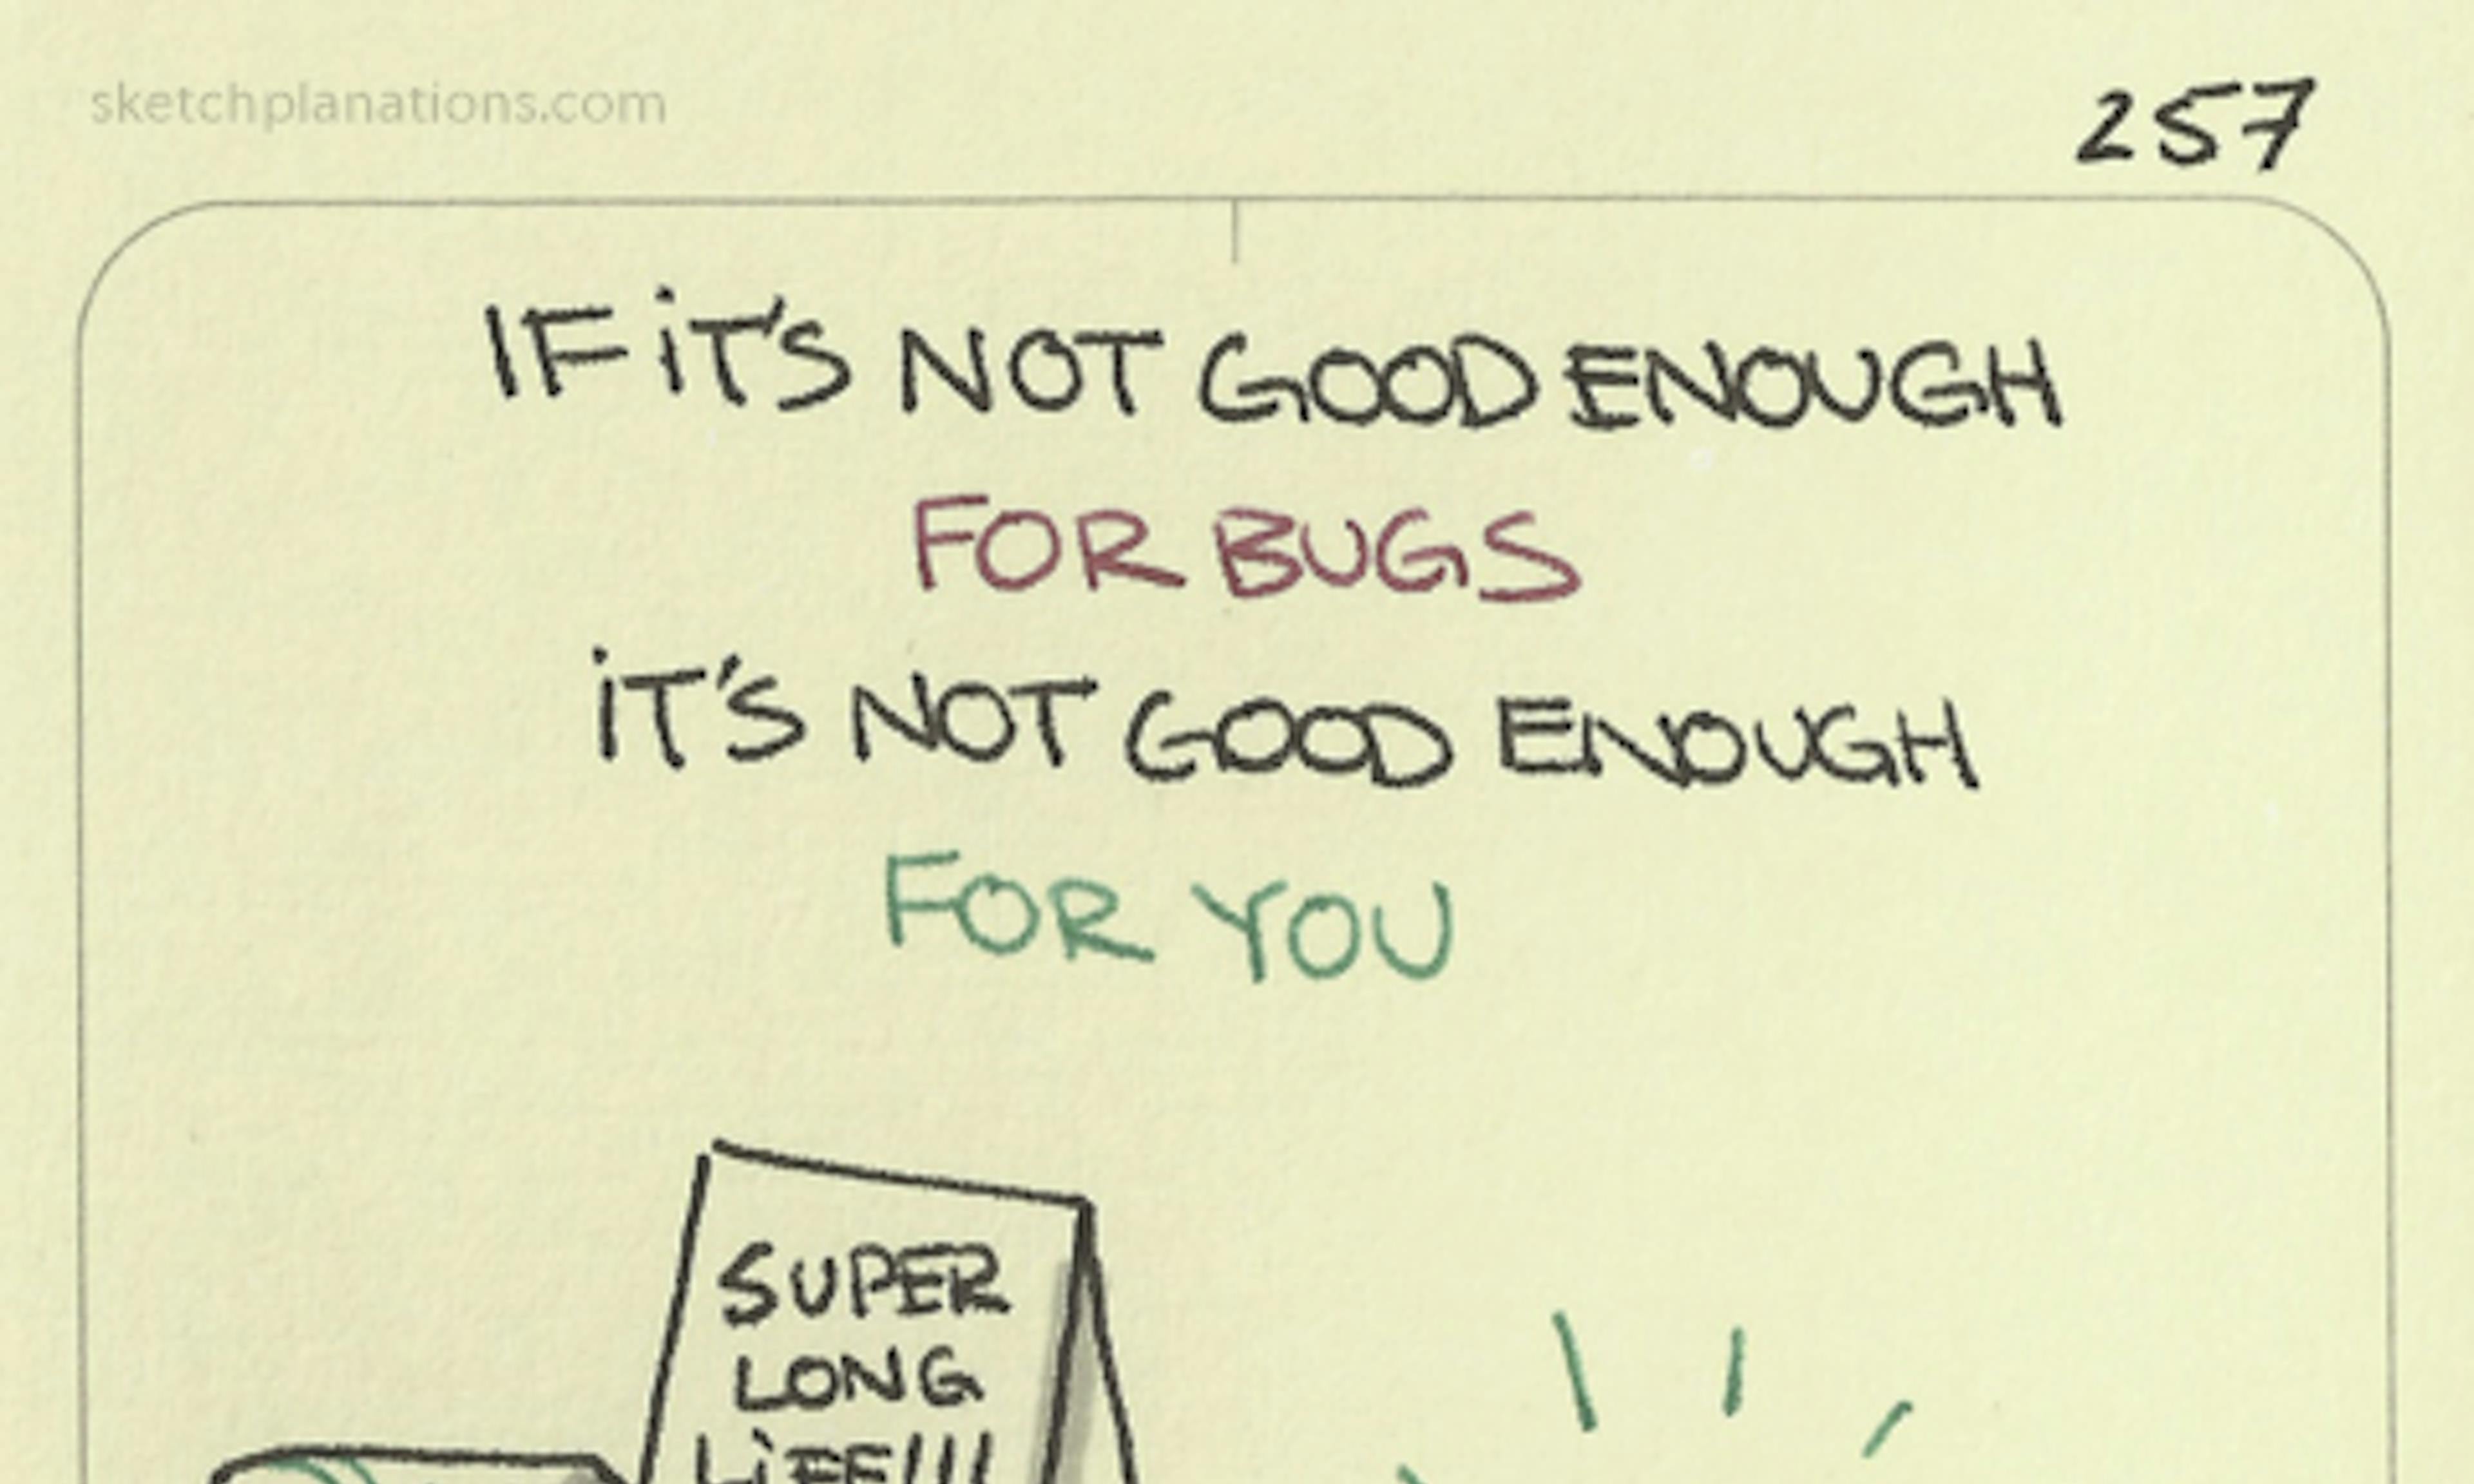 sketchplanations.com
257
IF iT'S NOT GOOD ENOUGH
FOR BUGS
iT'S NOT GOOD ENOUGH
FOR YOU
SUPER
LONG
LiFE!!!